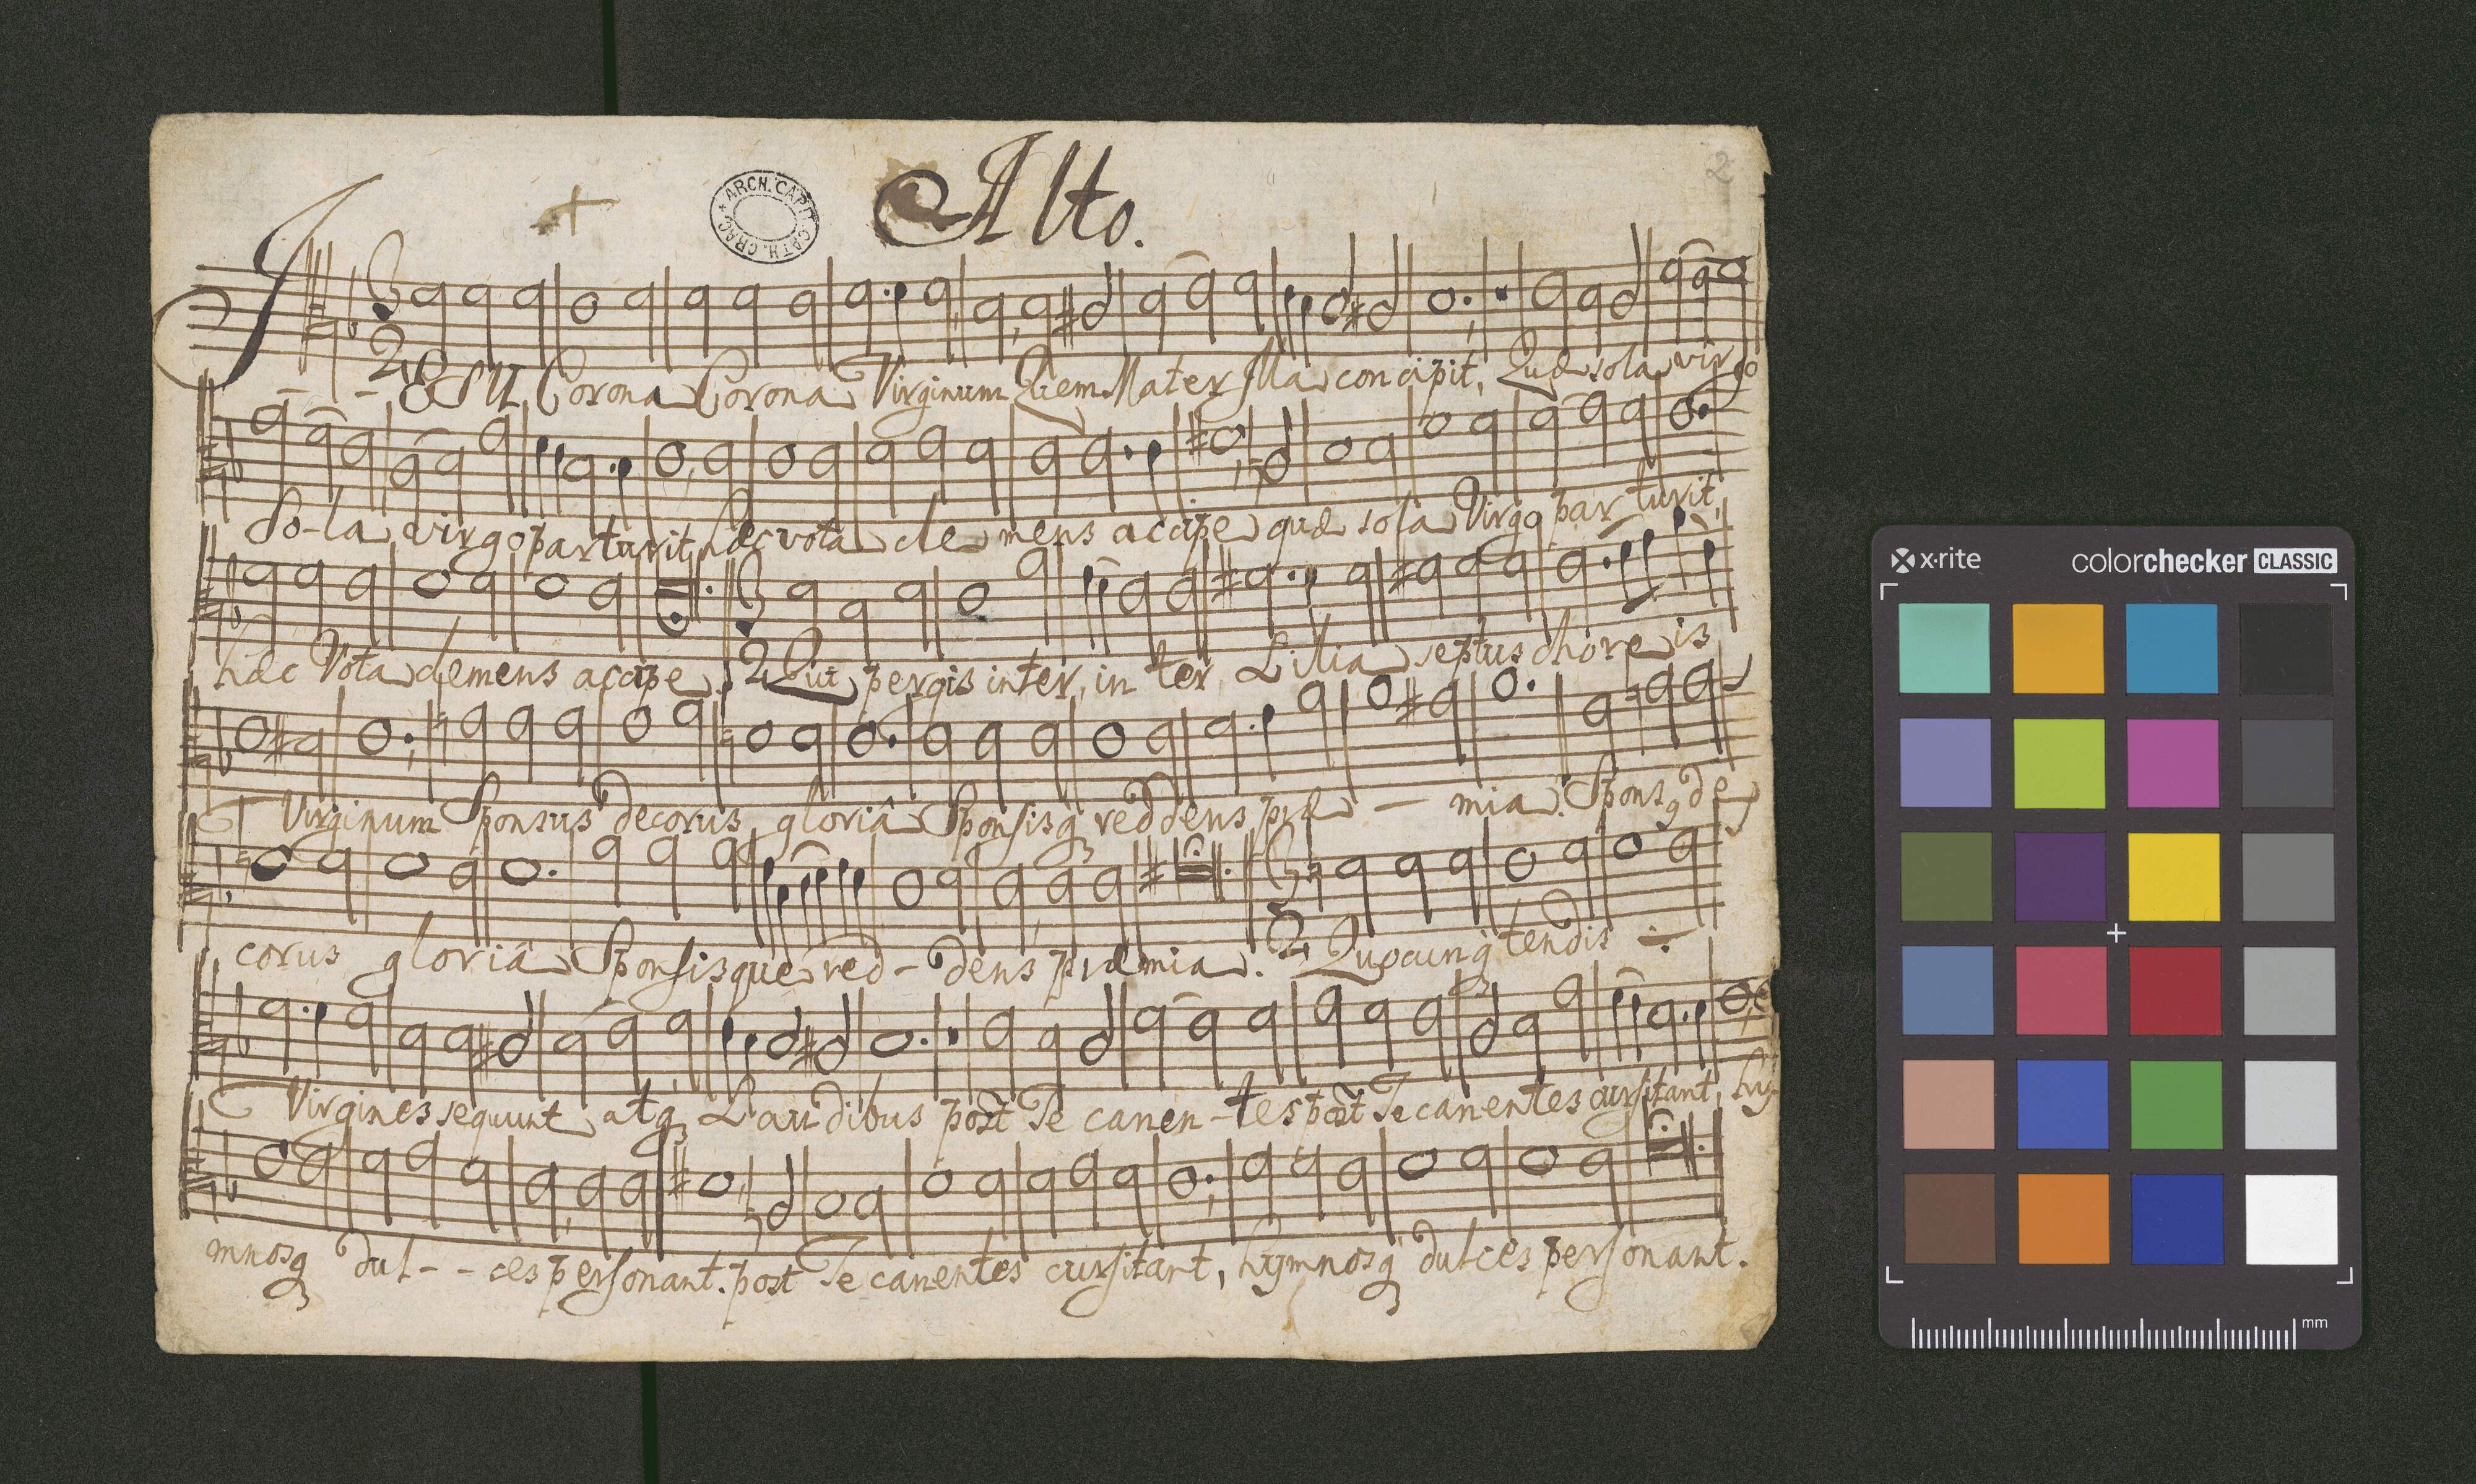 2
Alto.
ARCH. CAPIT. CATH. CRAC.
JESU Corona Corona Virginum Quem Mater Illa concipit, Quæ sola virgo
So-la virgo parturit hæc vota cle mens acipe quæ sola Virgo par turit,
hæc Vota clemens acipe. 2 Qui pergis inter, in ter Lilia septus choreis
Virginum Sponsus decorus gloriâ Sponsisq reddens præ - mia. Spons9 de
corus gloriâ Sponsisque red - dens præmia. Quocunq tendis
Virgines sequunt atq Lau dibus post Te canen - tes post Te canentes cursitant, hy
mnosq dul - - ces personant. post Te canentes cursitant, hymnosq dulces personant.
x·rite colorchecker CLASSIC
mm